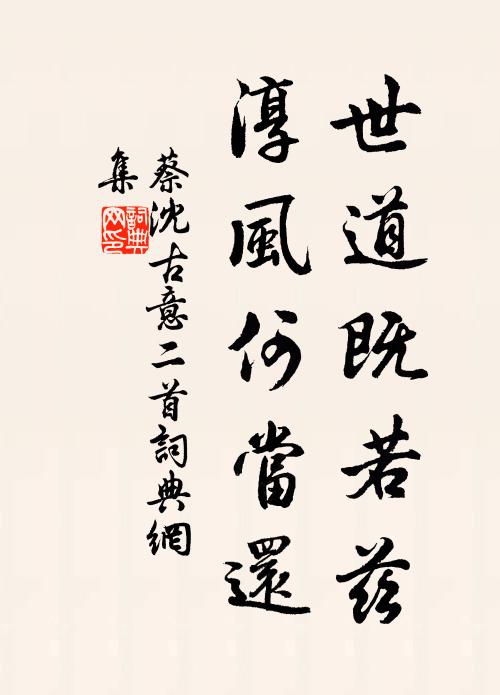 世道既若茲
淳風何當還
蔡沈古意二首詞典網
集
詞典網印